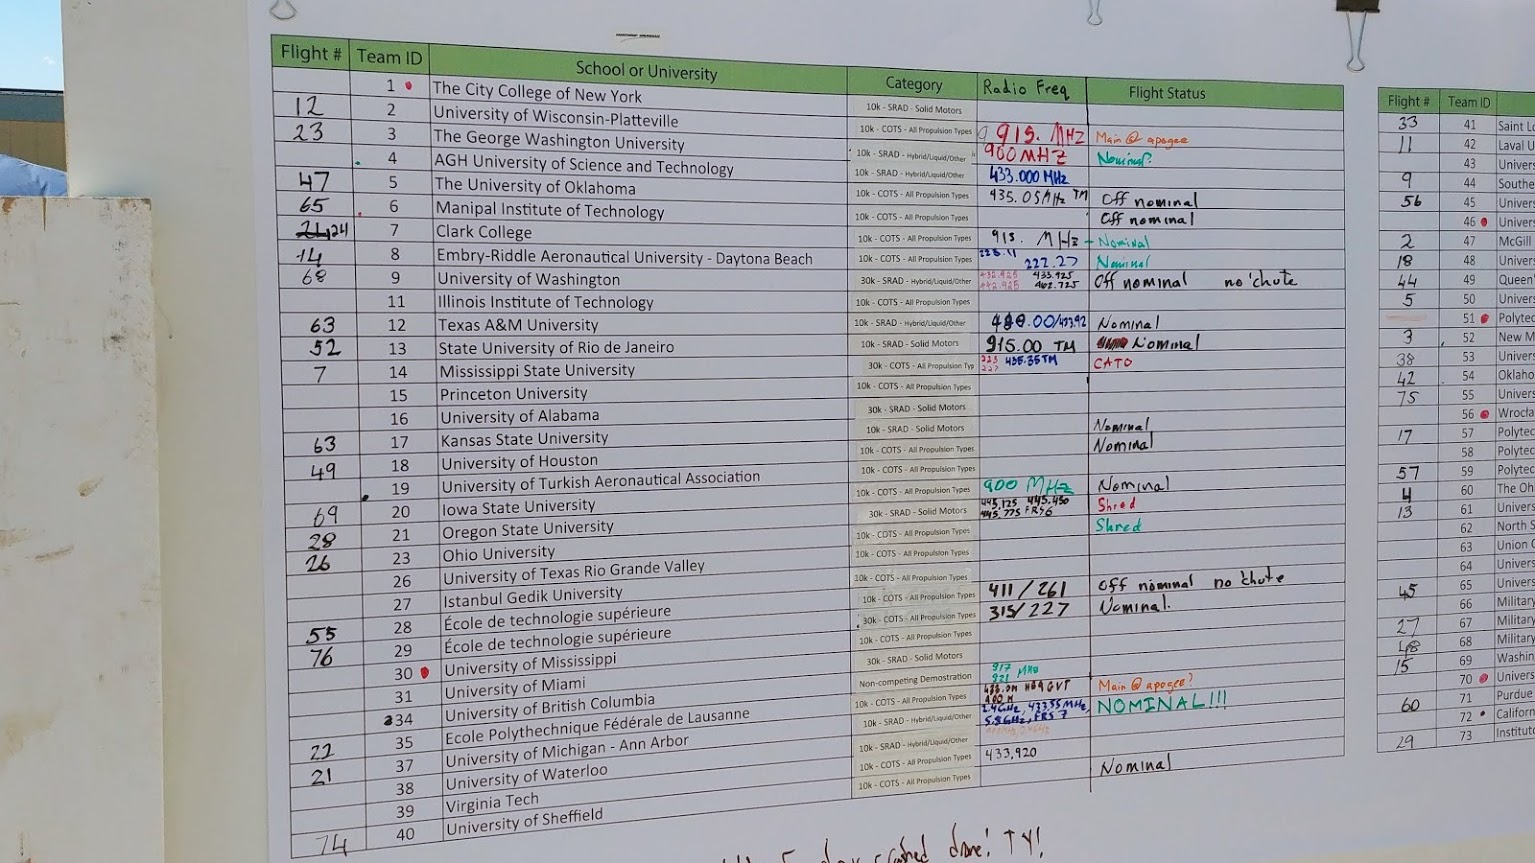 Flight # Team ID School or University Category Radio Freq Flight Status
1 The City College of New York 10k - SRAD - Solid Motors
12 2 University of Wisconsin-Platteville 10k - COTS - All Propulsion Types 915. MHZ Main @ apogee
23 3 The George Washington University 10k - SRAD - Hybrid/Liquid/Other 900 MHZ Nominal
4 AGH University of Science and Technology 10k - SRAD - Hybrid/Liquid/Other 433.000 MHz
47 5 The University of Oklahoma 10k - COTS - All Propulsion Types 435.05MHz TM Off nominal
65 6 Manipal Institute of Technology 10k - COTS - All Propulsion Types Off nominal
24 7 Clark College 10k - COTS - All Propulsion Types 915. MHz Nominal
14 8 Embry-Riddle Aeronautical University - Daytona Beach 10k - COTS - All Propulsion Types 222.27 Nominal
68 9 University of Washington 30k - SRAD - Hybrid/Liquid/Other 433.925 462.725 Off nominal no 'chute
11 Illinois Institute of Technology 10k - COTS - All Propulsion Types
63 12 Texas A&M University 10k - SRAD - Hybrid/Liquid/Other Nominal
52 13 State University of Rio de Janeiro 10k - SRAD - Solid Motors 915.00 TM Nominal
7 14 Mississippi State University 30k - COTS - All Propulsion Typ 435.35TM CATO
15 Princeton University 10k - COTS - All Propulsion Types
16 University of Alabama 30k - SRAD - Solid Motors
63 17 Kansas State University 10k - SRAD - Solid Motors Nominal
49 18 University of Houston 10k - COTS - All Propulsion Types Nominal
19 University of Turkish Aeronautical Association 10k - COTS - All Propulsion Types
69 20 Iowa State University 10k - COTS - All Propulsion Types 900 MHz Nominal
28 21 Oregon State University 30k - SRAD - Solid Motors 445.125 445.450 445.775 FRS6 Shred
26 23 Ohio University 10k - COTS - All Propulsion Types Shred
26 University of Texas Rio Grande Valley 10k - COTS - All Propulsion Types
27 Istanbul Gedik University 10k - COTS - All Propulsion Types
55 28 École de technologie supérieure 10k - COTS - All Propulsion Types 411/261 Off nominal no 'chute
76 29 École de technologie supérieure 30k - COTS - All Propulsion Types 315/227 Nominal.
30 University of Mississippi 10k - COTS - All Propulsion Types
31 University of Miami 30k - SRAD - Solid Motors
34 University of British Columbia Non-competing Demostration 917 921 MHz
35 Ecole Polythechnique Fédérale de Lausanne 10k - COTS - All Propulsion Types Main @ apogee?
22 37 University of Michigan - Ann Arbor 10k - SRAD - Hybrid/Liquid/Other 2.4GHz, 433.35MHz, 5.8GHz, FRS 7 NOMINAL!!!
21 38 University of Waterloo 10k - SRAD - Hybrid/Liquid/Other
39 Virginia Tech 10k - COTS - All Propulsion Types 433,920
74 40 University of Sheffield 10k - COTS - All Propulsion Types Nominal
crashed drone! TY!
Flight # Team ID
33 41 Saint Lo
11 42 Laval U
43 Univers
9 44 Southe
56 45 Univers
46 Univers
2 47 McGill
18 48 Univers
44 49 Queen'
5 50 Univers
51 Polytec
3 52 New M
38 53 Univers
42 54 Oklaho
75 55 Univers
56 Wrocła
17 57 Polytec
58 Polytec
57 59 Polytec
4 60 The Oh
13 61 Univers
62 North S
63 Union C
64 Univers
45 65 Univers
66 Military
27 67 Military
48 68 Military
15 69 Washin
70 Univers
60 71 Purdue
72 Californ
29 73 Institut